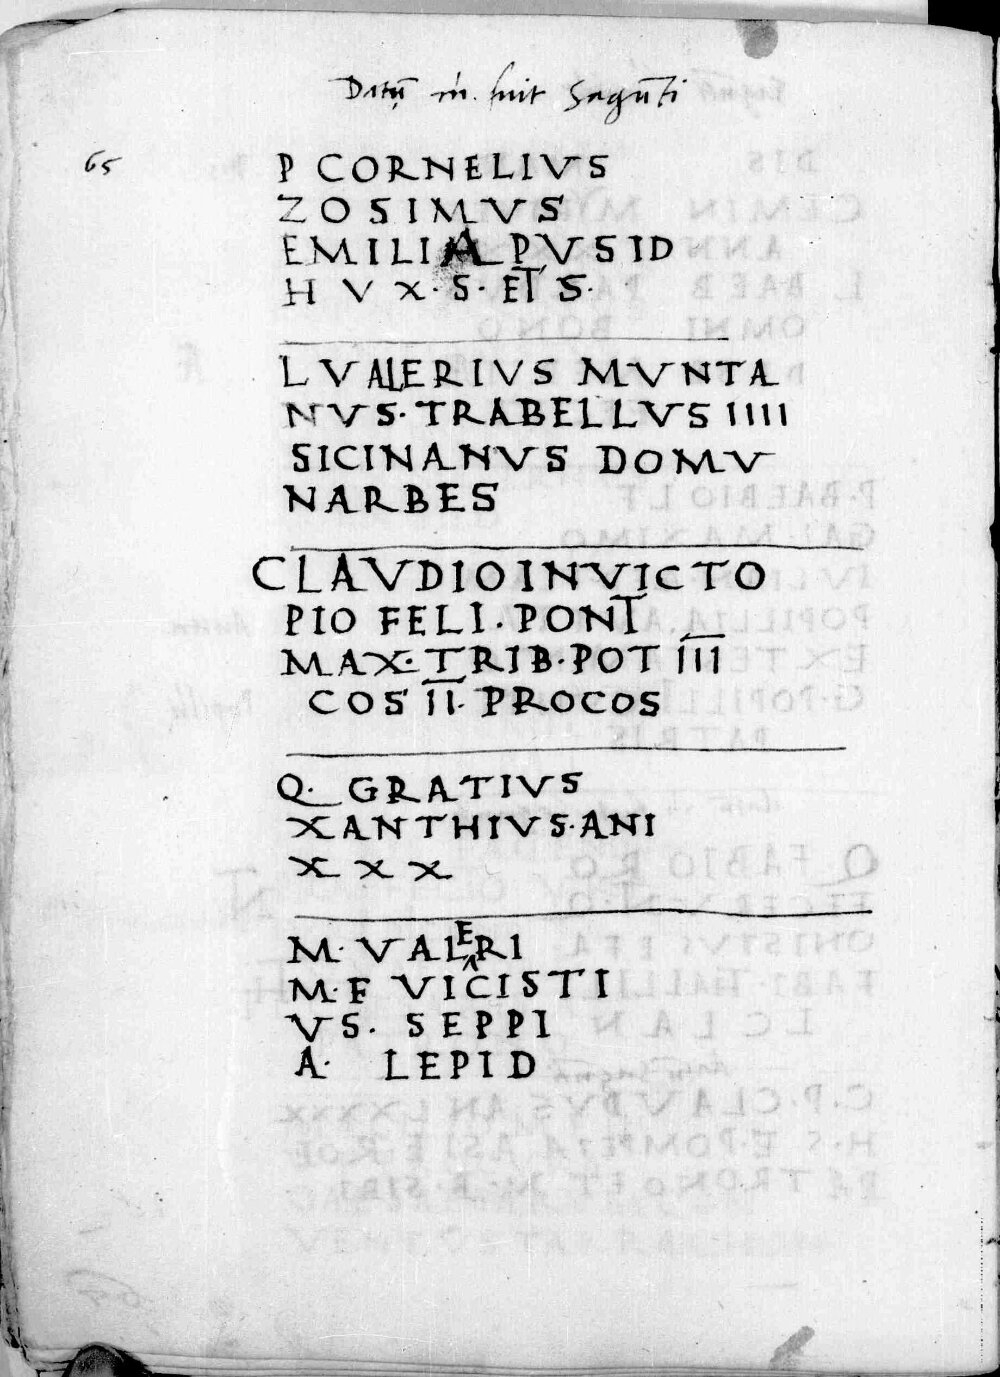 Datū m̄. fuit Sagūti
65
P CORNELIVS
ZOSIMVS
EMILIA PVSID
H V X · S · ET S ·
L VALERIVS MVNTA
NVS · TRABELLVS IIII
SICINANVS DOMV
NARBES
CLAVDIO INVICTO
PIO FELI . PONT
MAX · TRIB · POT III
COS II · PROCOS
Q · GRATIVS
XANTHIVS · ANI
X X X
M · VALERI
M · F VICISTI
VS . SEPPI
A · LEPID